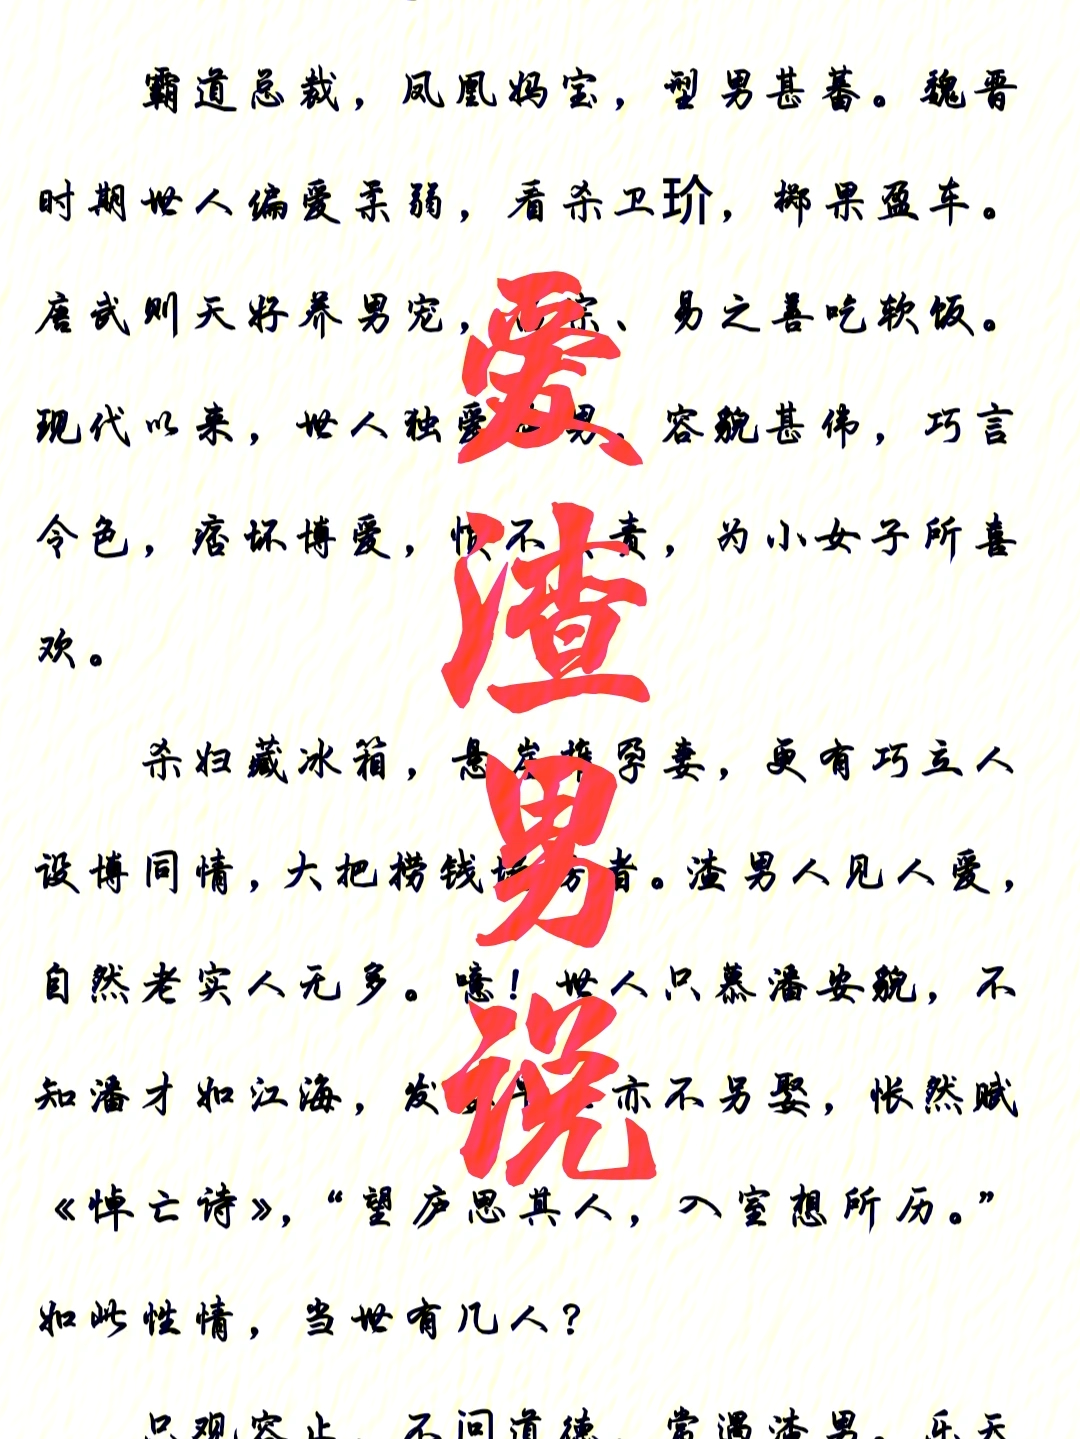 霸道总裁，凤凰妈宝，型男甚蕃。魏晋
时期世人偏爱柔弱，看杀卫玠，掷果盈车。
唐武则天好养男宠，宗、易之善吃软饭。
现代以来，世人独爱男，容貌甚伟，巧言
令色，痞坏博爱，惧不责，为小女子所喜
欢。
杀妇藏冰箱，悬崖推孕妻，更有巧立人
设博同情，大把捞钱者。渣男人见人爱，
自然老实人无多。噫！世人只慕潘安貌，不
知潘才如江海，发亦不另娶，怅然赋
《悼亡诗》，“望庐思其人，入室想所历。”
如此性情，当世有几人？
只观容止，不问道德，常遇渣男。乐天
爱渣男说